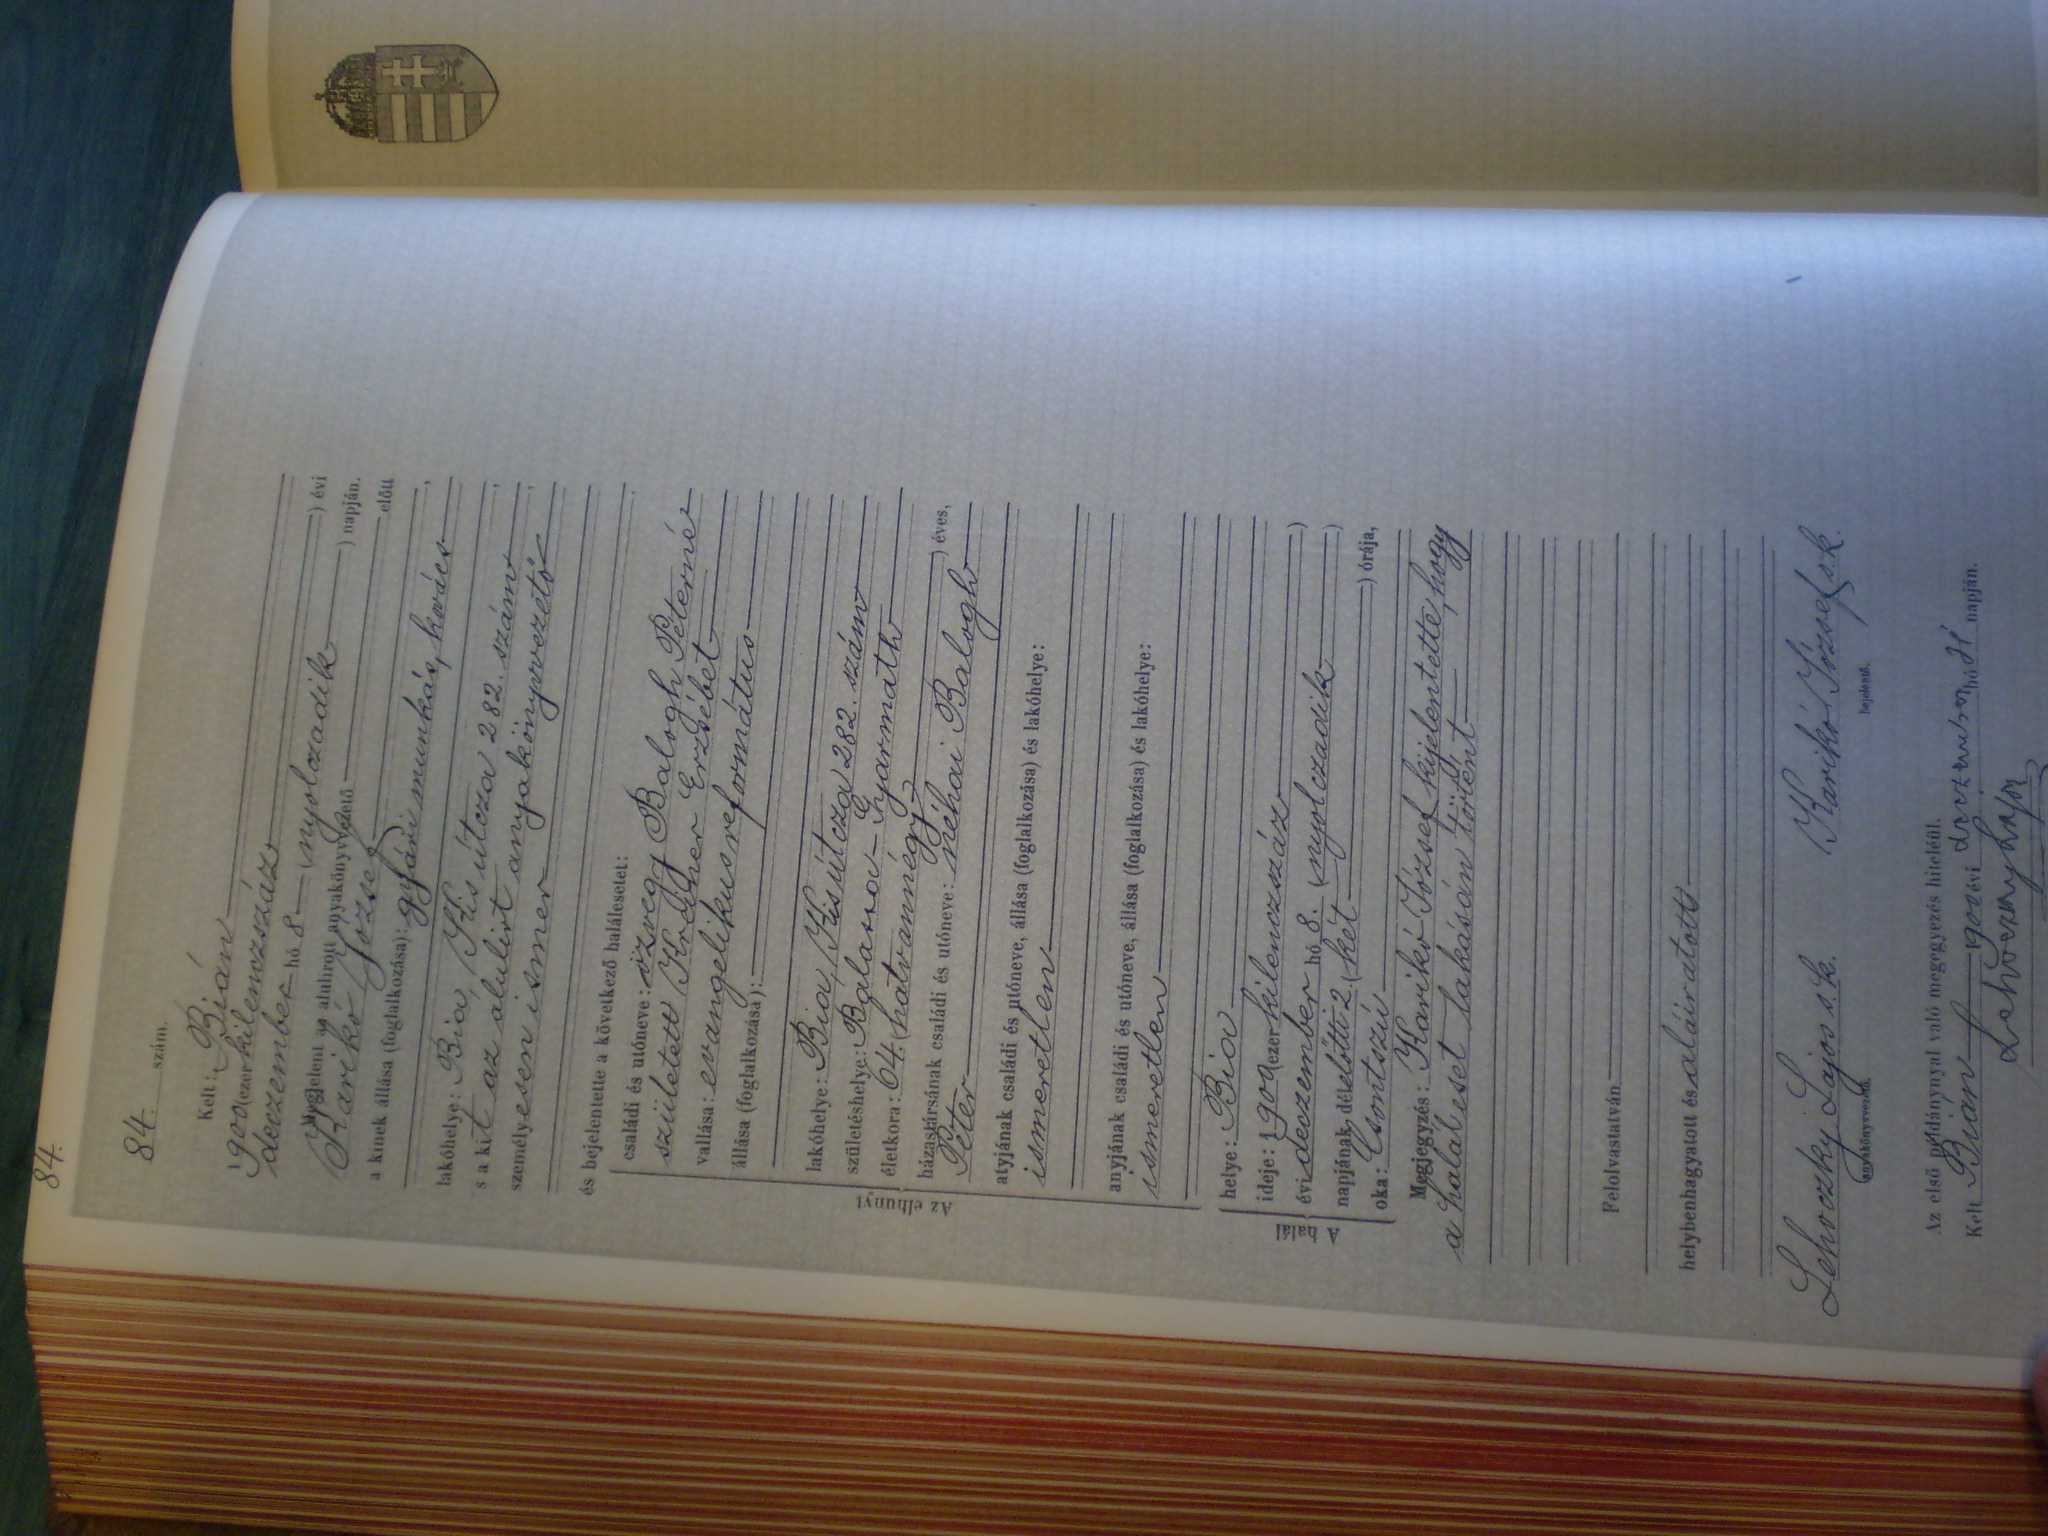 84.
84. szám.
Kelt: Bián
1900 ezerkilenczszáz ) évi
deczember hó 8 (nyolczadik ) napján.
Megjelent az alulirott anyakönyvvezető előtt
Karikó József
a kinek állása (foglalkozása): gyári munkás, kovács,
lakóhelye: Bia, Kis útcza 282. szám,
s a kit az alulirt anyakönyvvezető
személyesen ismer
és bejelentette a következő halálesetet:
Az elhunyt
családi és utóneve: özvegy Balogh Péterné
született Erzsébet
vallása: evangelikus református
állása (foglalkozása):
lakóhelye: Bia, Kis útcza 282. szám
születéshelye: Balassa-Gyarmath
életkora: 64. (hatvannégy ) éves,
házastársának családi és utóneve: néhai Balogh
Péter
atyjának családi és utóneve, állása (foglalkozása) és lakóhelye:
ismeretlen
anyjának családi és utóneve, állása (foglalkozása) és lakóhelye:
ismeretlen
A halál
helye: Bia
ideje: 1900 ezerkilenczszáz )
évi deczember hó 8. (nyolczadik )
napjának délelőtti 2. (két ) órája,
oka: Csontszú
Megjegyzés: Karikó József kijelentette, hogy
a haláleset lakásán történt
Felolvastatván
helybenhagyatott és aláíratott
Lehoczky Lajos s.k. Karikó József s.k.
anyakönyvvezető. bejelentő.
Az első példánynyal való megegyezés hiteléül.
Kelt Bián 1900 évi deczember hó 31 napján.
Lehoczky Lajos